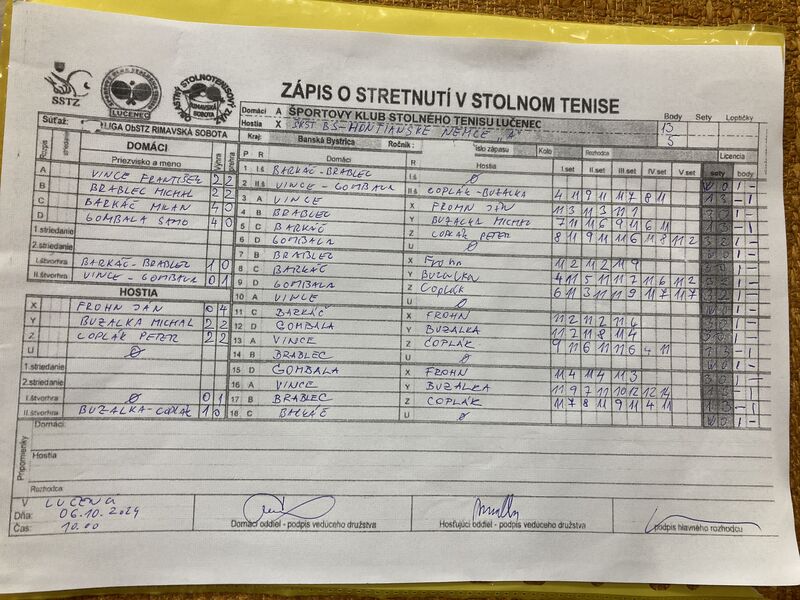 SSTZ
LUČENEC
RIMAVSKÁ SOBOTA
ZÁPIS O STRETNUTÍ V STOLNOM TENISE
Domáci A ŠPORTOVÝ KLUB STOLNÉHO TENISU LUČENEC
Hostia X ŠKST BŠ-HONTIANSKE NEMCE "A"
Body Sety Loptičky
13
5
Súťaž: LIGA ObSTZ RIMAVSKÁ SOBOTA
Kraj: Banská Bystrica Ročník: číslo zápasu Kolo Rozhodca Licencia
DOMÁCI
Priezvisko a meno
A VINCE FRANTIŠEK 2 2
B BRABLEC MICHAL 2 2
C BARKÁČ MILAN 4 0
D GOMBALA SAMO 4 0
1.striedanie
2.striedanie
I.štvorhra BARKÁČ-BRABLEC 1 0
II.štvorhra VINCE - GOMBALA 0 1
HOSTIA
X FROHN JÁN 0 4
Y BUZALKA MICHAL 2 2
Z COPLÁK PETER 2 2
U Ø
1.striedanie
2.striedanie
I.štvorhra Ø 0 1
II.štvorhra BUZALKA-COPLÁK 1 0
P R Domáci R Hostia I.set II.set III.set IV.set V.set sety body
1 I.š BARKÁČ-BRABLEC I.š Ø
2 II.š VINCE - GOMBALA II.š COPLÁK-BUZALKA 4 11 9 11 11 7 8 11
3 A VINCE X FROHN JÁN 11 3 11 3 11 1
4 B BRABLEC Y BUZALKA MICHAL 7 11 11 6 9 11 6 11
5 C BARKÁČ Z COPLÁK PETER 8 11 9 11 11 6 11 8 11 2
6 D GOMBALA U Ø
7 B BRABLEC X FROHN 11 2 11 2 11 9
8 C BARKÁČ Y BUZALKA 4 11 5 11 11 7 11 6 11 2
9 D GOMBALA Z COPLÁK 6 11 3 11 11 9 11 7 11 7
10 A VINCE U Ø
11 C BARKÁČ X FROHN 11 2 11 2 11 4
12 D GOMBALA Y BUZALKA 11 7 11 8 11 4
13 A VINCE Z COPLÁK 9 11 6 11 11 6 4 11
14 B BRABLEC U Ø
15 D GOMBALA X FROHN 11 4 11 4 11 3
16 A VINCE Y BUZALKA 11 9 7 11 10 12 12 14
17 B BRABLEC Z COPLÁK 11 7 8 11 9 11 4 11
18 C BARKÁČ U Ø
Pripomienky
Domáci:
Hostia
Rozhodca
V LUČENCI
Dňa: 06.10.2024
Čas: 10.00
Domáci oddiel - podpis vedúceho družstva
Hosťujúci oddiel - podpis vedúceho družstva
podpis hlavného rozhodcu